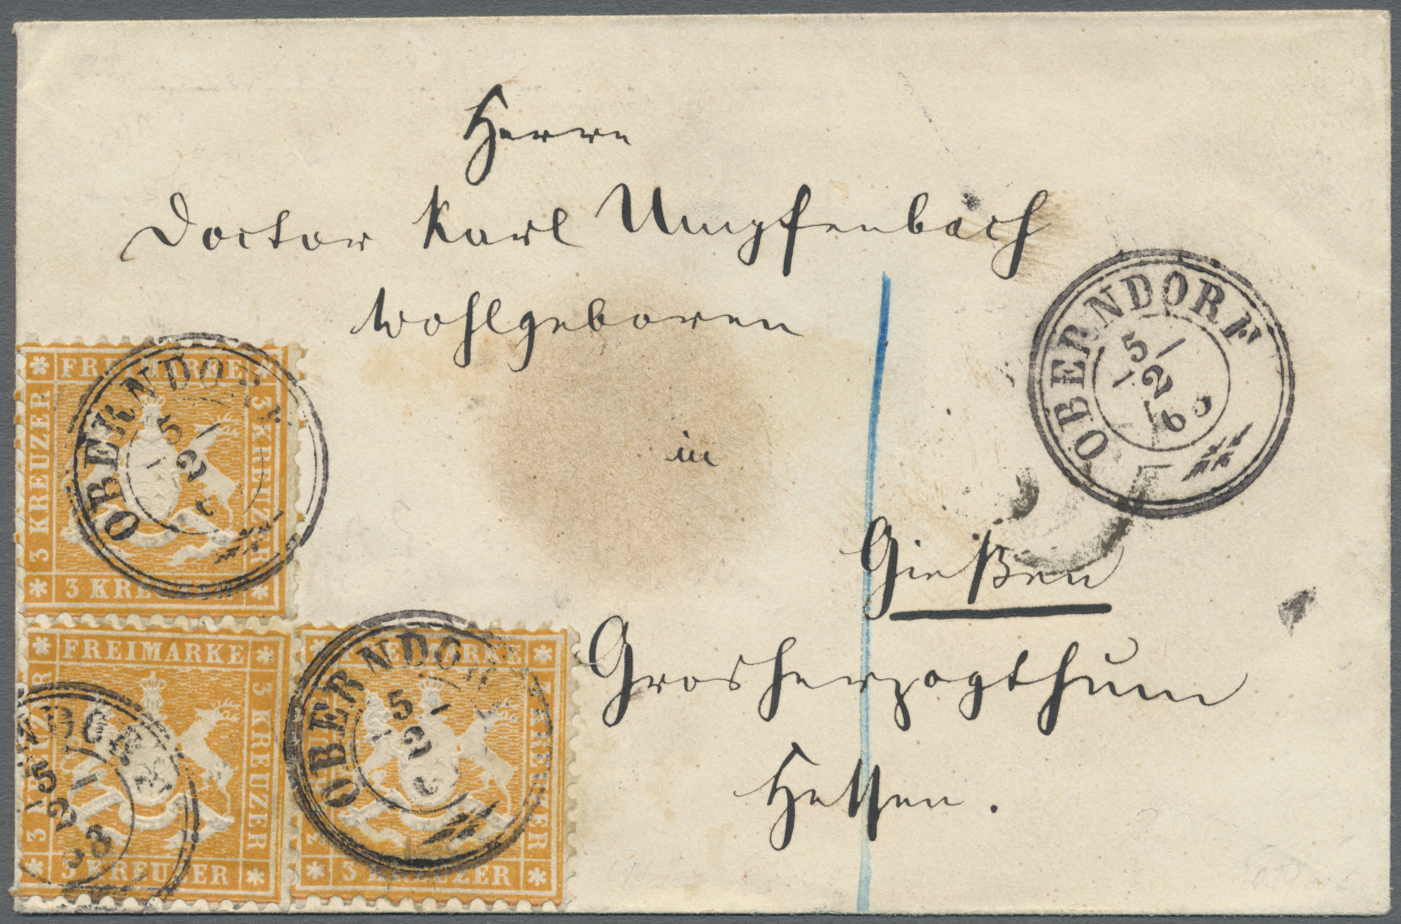 Herrn
Doctor Karl Umpfenbach
Wohlgeboren
in
Gießen
Grosherzogthum
Hessen.
OBERNDORF
5/2 63
FREIMARKE
3 KREUZER
3 KREUZER
3 KREUZER
OBERNDORF
5/2 6
FREIMARKE
3 KREUZER
3 KREUZER
3 KREUZER
5/2 63
FREIMARKE
3 KREUZER
3 KREUZER
3 KREUZER
OBERNDORF
5/2 6